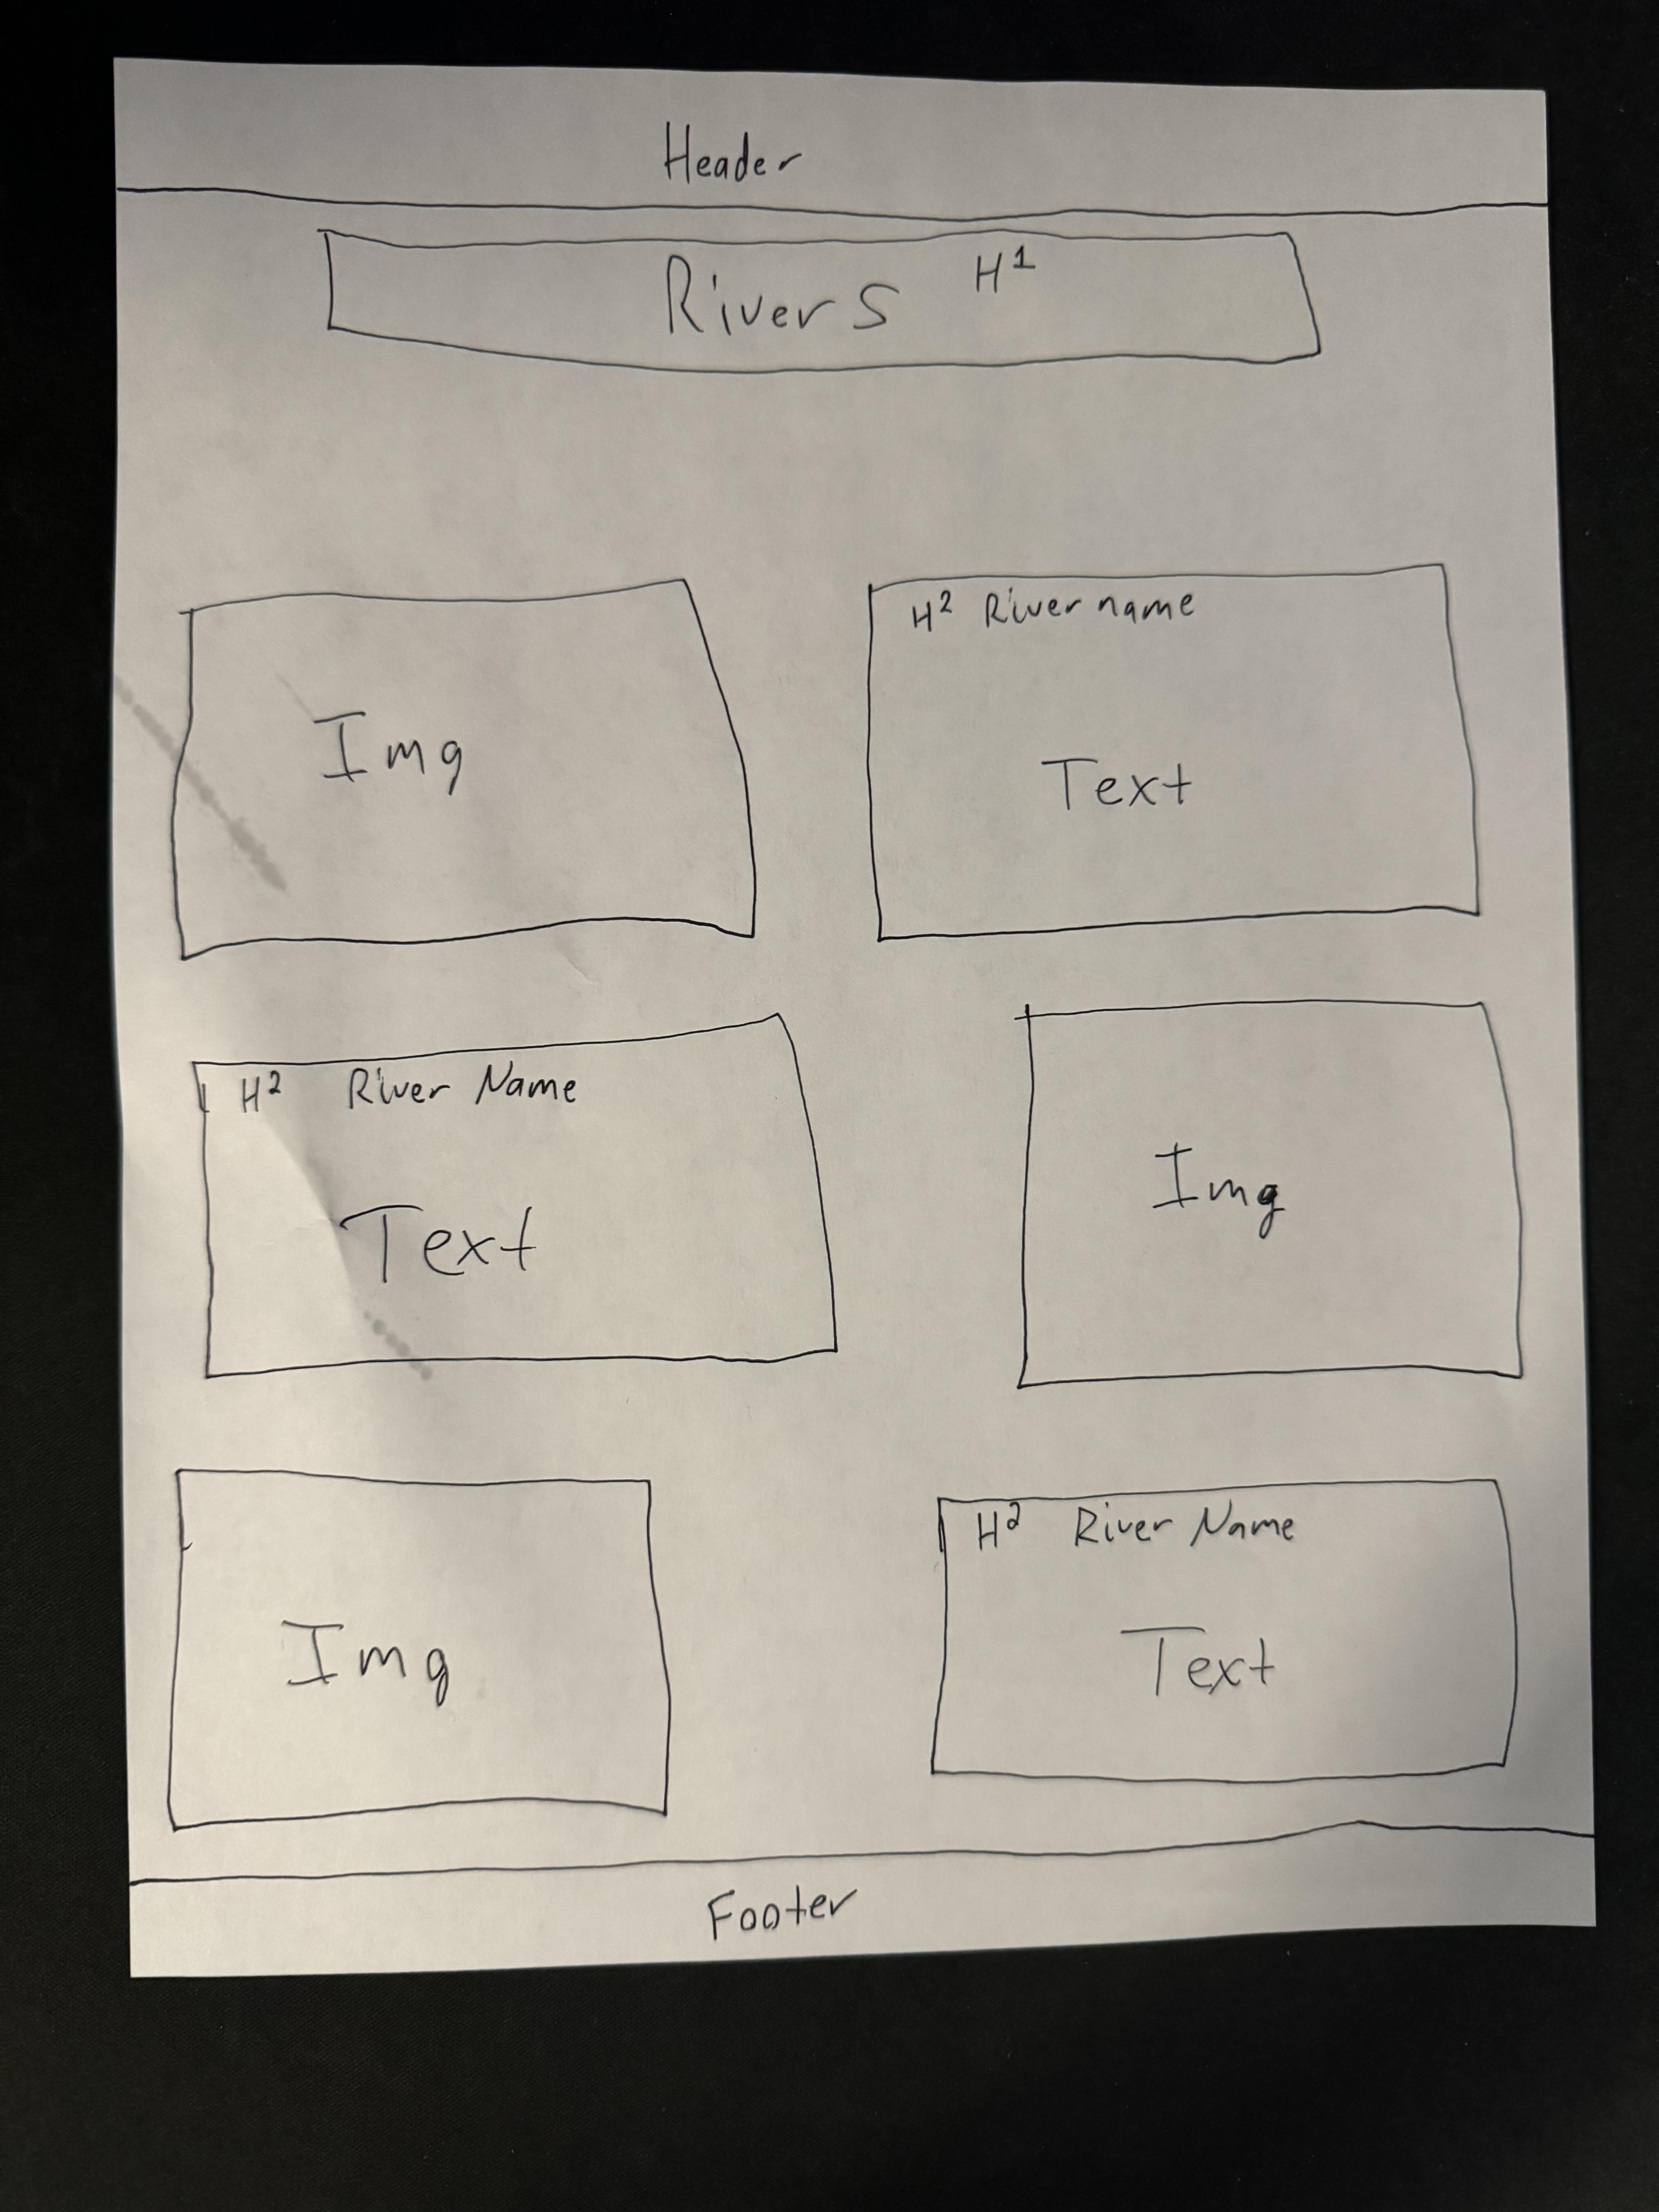 Header
Rivers H1
Img
H2 River name
Text
H2 River Name
Text
Img
Img
H2 River Name
Text
Footer